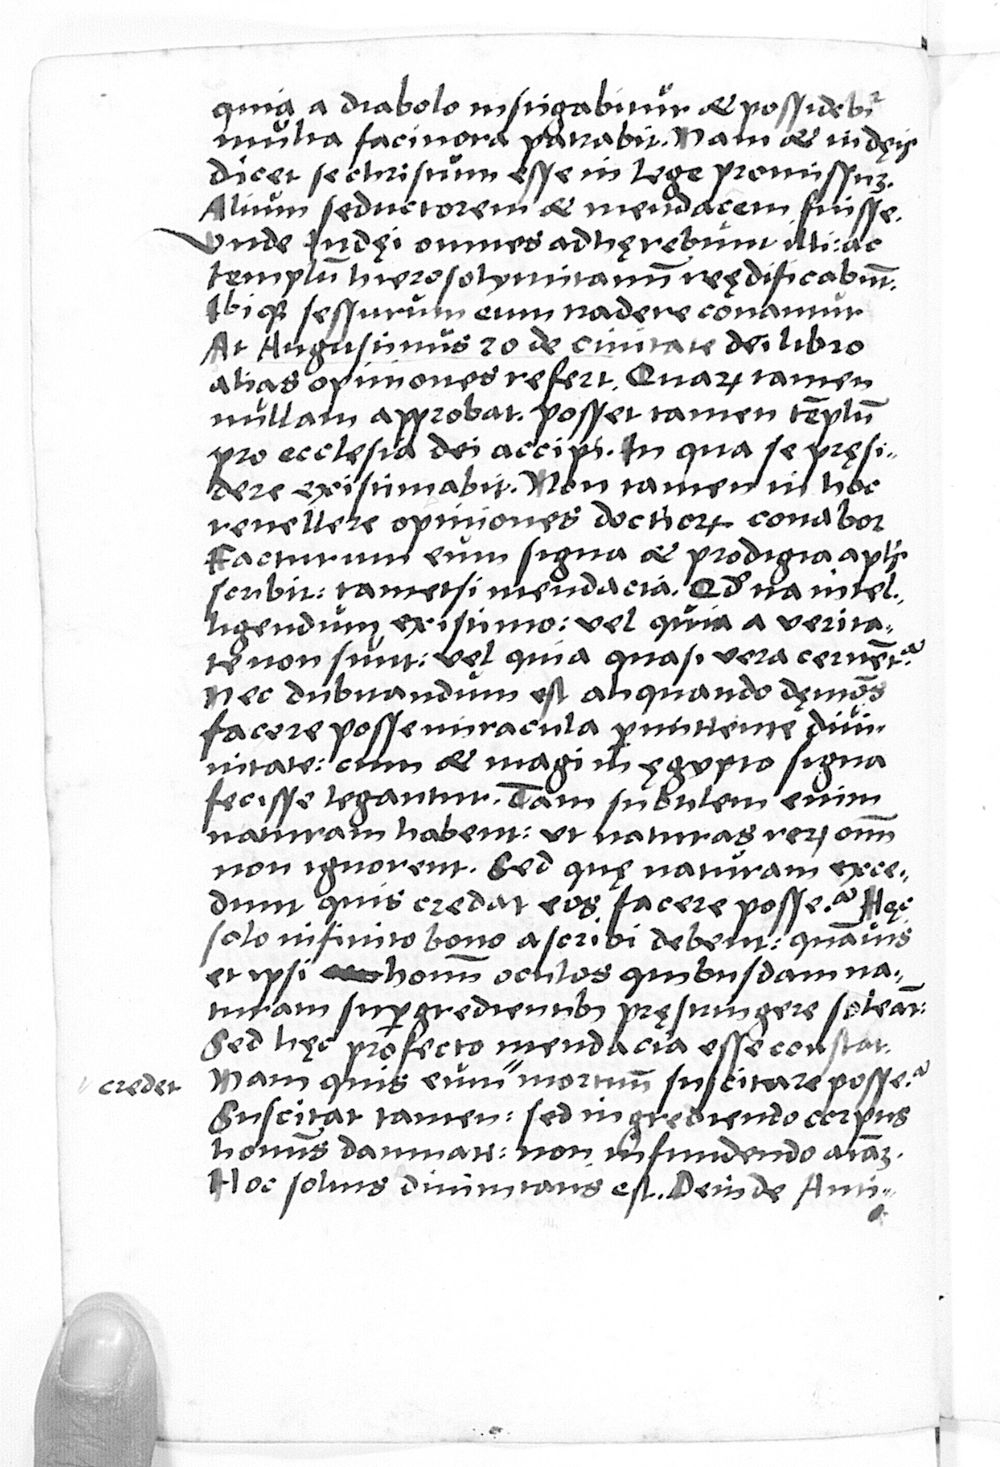 quia a diabolo instigabitur & possidebir̃
multa facinora patrabit. Nam & iudęis
dicet se christum esse in lege promissuʒ.
Alium seductorem & mendacem fuisse.
Vnde Iudęi omnes adhęrebunt illi: ac
templũ hierosolymitanũ reędificabũt.
Ibiqʒ sessurum eum tradere conantur
At Augustinus 20 de ciuitate dei libro
alias opiniones refert. Quaꝝ tamen
nullam approbat. posset tamen tẽplũ
pro ecclesia dei accipi. In qua se pręsi-
dere existimabit. Non tamen in hoc
reuellere opiniones doctioꝝ conabor
Facturum eum signa & prodigia apl's
scribit: tametsi mendacia. Qđ ita intel-
ligendum existimo: vel quia a verita-
te non sunt: vel quia quasi vera cernẽt᷑?
Nec dubitandum est aliquando dęmões
facere posse miracula ꝑmittente diui-
nitate: cum & magi in ęgypto signa
fecisse legantur. Tam subtilem enim
naturam habent: vt naturas reꝝ oim̃
non ignorent. Sed quę naturam exce-
dunt quis credat eos facere posse? Hęc
solo infinito bono ascribi debent: quãuis
et ipsi hoim̃ oculos quibusdam na-
turam suꝑgredientibꝫ pręstringere soleãt:
Sed hęc profecto mendacia esse constat.
credet
Nam quis eum " mortuũ suscitare posse?
Suscitat tamen: sed ingrediendo corpus
homĩs damnati: non infundendo aĩaʒ.
Hoc solius diuinitatis est. Deinde Anti-